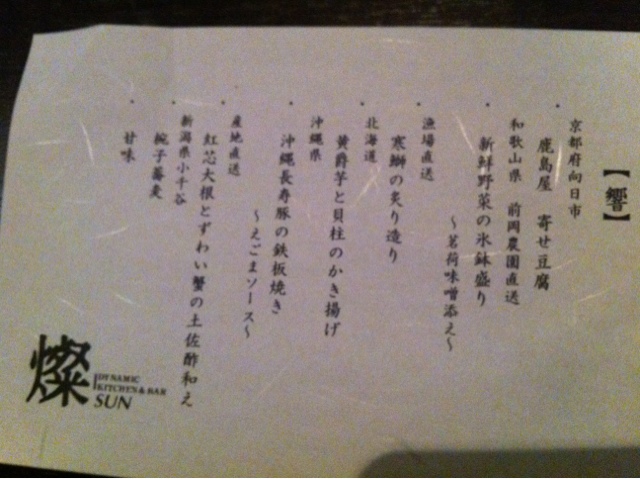 【響】
京都府向日市
・鹿島屋 寄せ豆腐
和歌山県 前岡農園直送
・新鮮野菜の氷鉢盛り
~茗荷味噌添え~
漁場直送
・寒鰤の炙り造り
北海道
・黄爵芋と貝柱のかき揚げ
沖縄県
・沖縄長寿豚の鉄板焼き
~えごまソース~
産地直送
・紅芯大根とずわい蟹の土佐酢和え
新潟県小千谷
・椀子蕎麦
・甘味
燦
DYNAMIC
KITCHEN & BAR
SUN